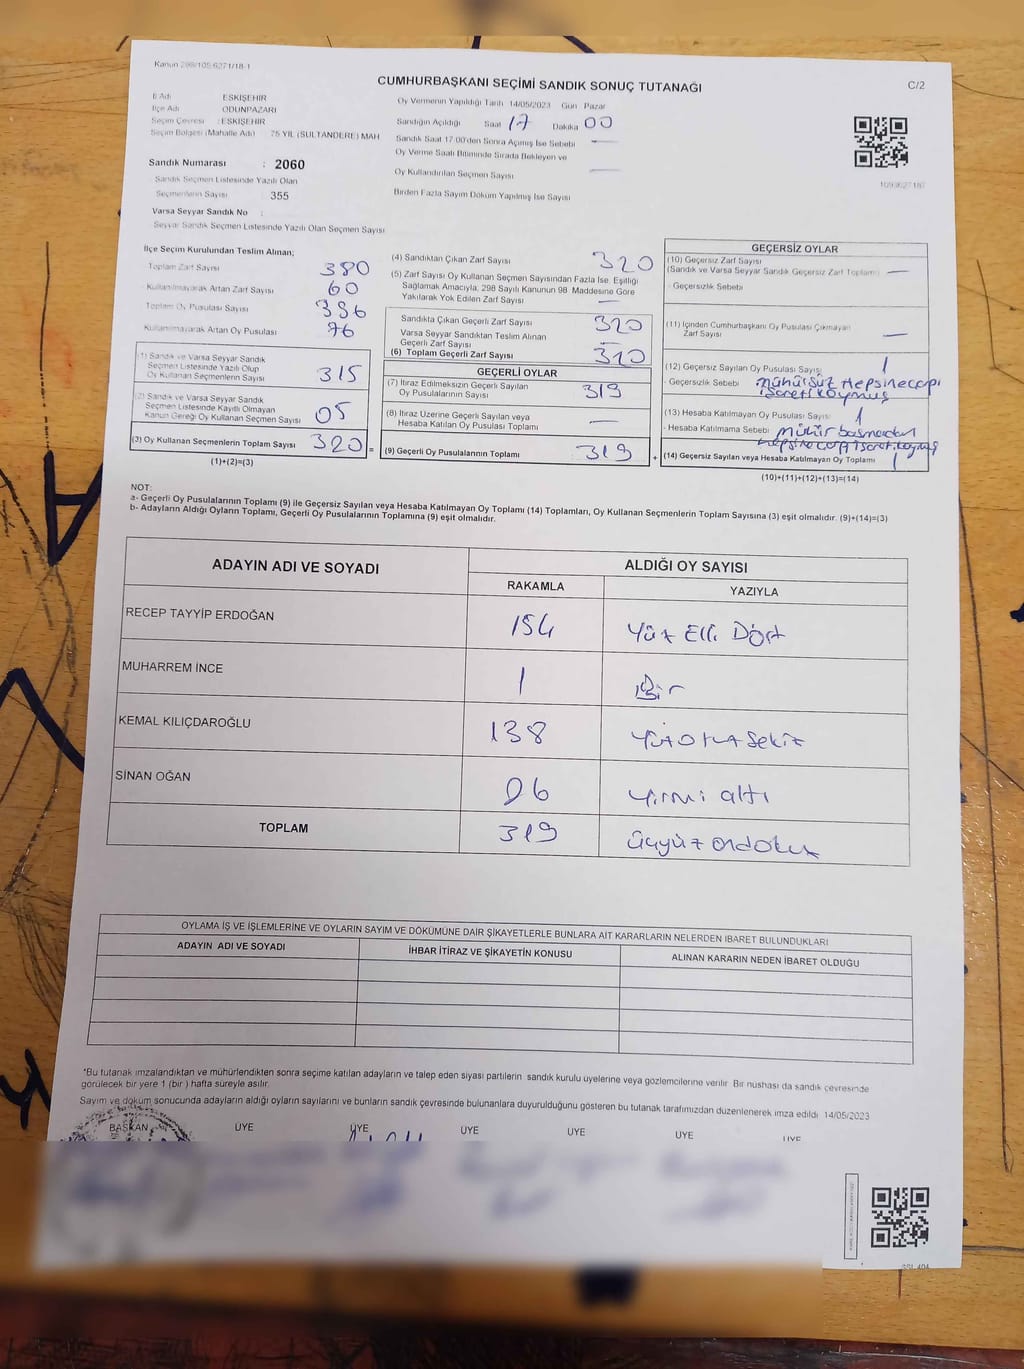 Kanun 298/105 6271/18-1
CUMHURBAŞKANI SEÇİMİ SANDIK SONUÇ TUTANAĞI
C/2
İl Adı ESKİŞEHİR
İlçe Adı ODUNPAZARI
Seçim Çevresi : ESKİŞEHİR
Seçim Bölgesi (Mahalle Adı) 75 YIL (SULTANDERE) MAH
Sandık Numarası : 2060
Sandık Seçmen Listesinde Yazılı Olan
Seçmenlerin Sayısı 355
Varsa Seyyar Sandık No :
Seyyar Sandık Seçmen Listesinde Yazılı Olan Seçmen Sayısı
Oy Vermenin Yapıldığı Tarih 14/05/2023 Gün Pazar
Sandığın Açıldığı Saat 17 Dakika 00
Sandık Saat 17:00'den Sonra Açımış İse Sebebi —
Oy Verme Saati Bitiminde Sırada Bekleyen ve
Oy Kullandırılan Seçmen Sayısı —
Birden Fazla Sayım Döküm Yapılmış İse Sayısı
1099027187
İlçe Seçim Kurulundan Teslim Alınan;
Toplam Zarf Sayısı 380
Kullanılmayarak Artan Zarf Sayısı 60
Toplam Oy Pusulası Sayısı 396
Kullanılmayarak Artan Oy Pusulası 76
(1) Sandık ve Varsa Seyyar Sandık
Seçmen Listesinde Yazılı Olup
Oy Kullanan Seçmenlerin Sayısı 315
(2) Sandık ve Varsa Seyyar Sandık
Seçmen Listesinde Kayıtlı Olmayan
Kanun Gereği Oy Kullanan Seçmen Sayısı 05
(3) Oy Kullanan Seçmenlerin Toplam Sayısı 320
(1)+(2)=(3)
(4) Sandıktan Çıkan Zarf Sayısı 320
(5) Zarf Sayısı Oy Kullanan Seçmen Sayısından Fazla İse, Eşitliği
Sağlamak Amacıyla, 298 Sayılı Kanunun 98. Maddesine Göre
Yakılarak Yok Edilen Zarf Sayısı —
Sandıkta Çıkan Geçerli Zarf Sayısı 320
Varsa Seyyar Sandıktan Teslim Alınan
Geçerli Zarf Sayısı
(6) Toplam Geçerli Zarf Sayısı 320
GEÇERLİ OYLAR
(7) İtiraz Edilmeksizin Geçerli Sayılan
Oy Pusulalarının Sayısı 319
(8) İtiraz Üzerine Geçerli Sayılan veya
Hesaba Katılan Oy Pusulası Toplamı —
= (9) Geçerli Oy Pusulalarının Toplamı 319 +
GEÇERSİZ OYLAR
(10) Geçersiz Zarf Sayısı
(Sandık ve Varsa Seyyar Sandık Geçersiz Zarf Toplamı) —
- Geçersizlik Sebebi
(11) İçinden Cumhurbaşkanı Oy Pusulası Çıkmayan
Zarf Sayısı —
(12) Geçersiz Sayılan Oy Pusulası Sayısı 1
- Geçersizlik Sebebi mühürsüz Hepsine carpı
işareti koymuş
(13) Hesaba Katılmayan Oy Pusulası Sayısı 1
- Hesaba Katılmama Sebebi mühür basmadan
hepsine carpı isaret koymuş
(14) Geçersiz Sayılan veya Hesaba Katılmayan Oy Toplamı 1
(10)+(11)+(12)+(13)=(14)
NOT:
a- Geçerli Oy Pusulalarının Toplamı (9) ile Geçersiz Sayılan veya Hesaba Katılmayan Oy Toplamı (14) Toplamları, Oy Kullanan Seçmenlerin Toplam Sayısına (3) eşit olmalıdır. (9)+(14)=(3)
b- Adayların Aldığı Oyların Toplamı, Geçerli Oy Pusulalarının Toplamına (9) eşit olmalıdır.
ADAYIN ADI VE SOYADI ALDIĞI OY SAYISI
RAKAMLA YAZIYLA
RECEP TAYYİP ERDOĞAN 154 Yüz Elli Dört
MUHARREM İNCE 1 Bir
KEMAL KILIÇDAROĞLU 138 Yüz Otuz Sekiz
SİNAN OĞAN 26 Yirmi altı
TOPLAM 319 üçyüz ondokuz
OYLAMA İŞ VE İŞLEMLERİNE VE OYLARIN SAYIM VE DÖKÜMÜNE DAİR ŞİKAYETLERLE BUNLARA AİT KARARLARIN NELERDEN İBARET BULUNDUKLARI
ADAYIN ADI VE SOYADI İHBAR İTİRAZ VE ŞİKAYETİN KONUSU ALINAN KARARIN NEDEN İBARET OLDUĞU
*Bu tutanak imzalandıktan ve mühürlendikten sonra seçime katılan adayların ve talep eden siyasi partilerin sandık kurulu üyelerine veya gözlemcilerine verilir. Bir nüshası da sandık çevresinde
görülecek bir yere 1 (bir) hafta süreyle asılır.
Sayım ve döküm sonucunda adayların aldığı oyların sayılarını ve bunların sandık çevresinde bulunanlara duyurulduğunu gösteren bu tutanak tarafımızdan düzenlenerek imza edildi. 14/05/2023
BAŞKAN ÜYE ÜYE ÜYE ÜYE ÜYE ÜYE